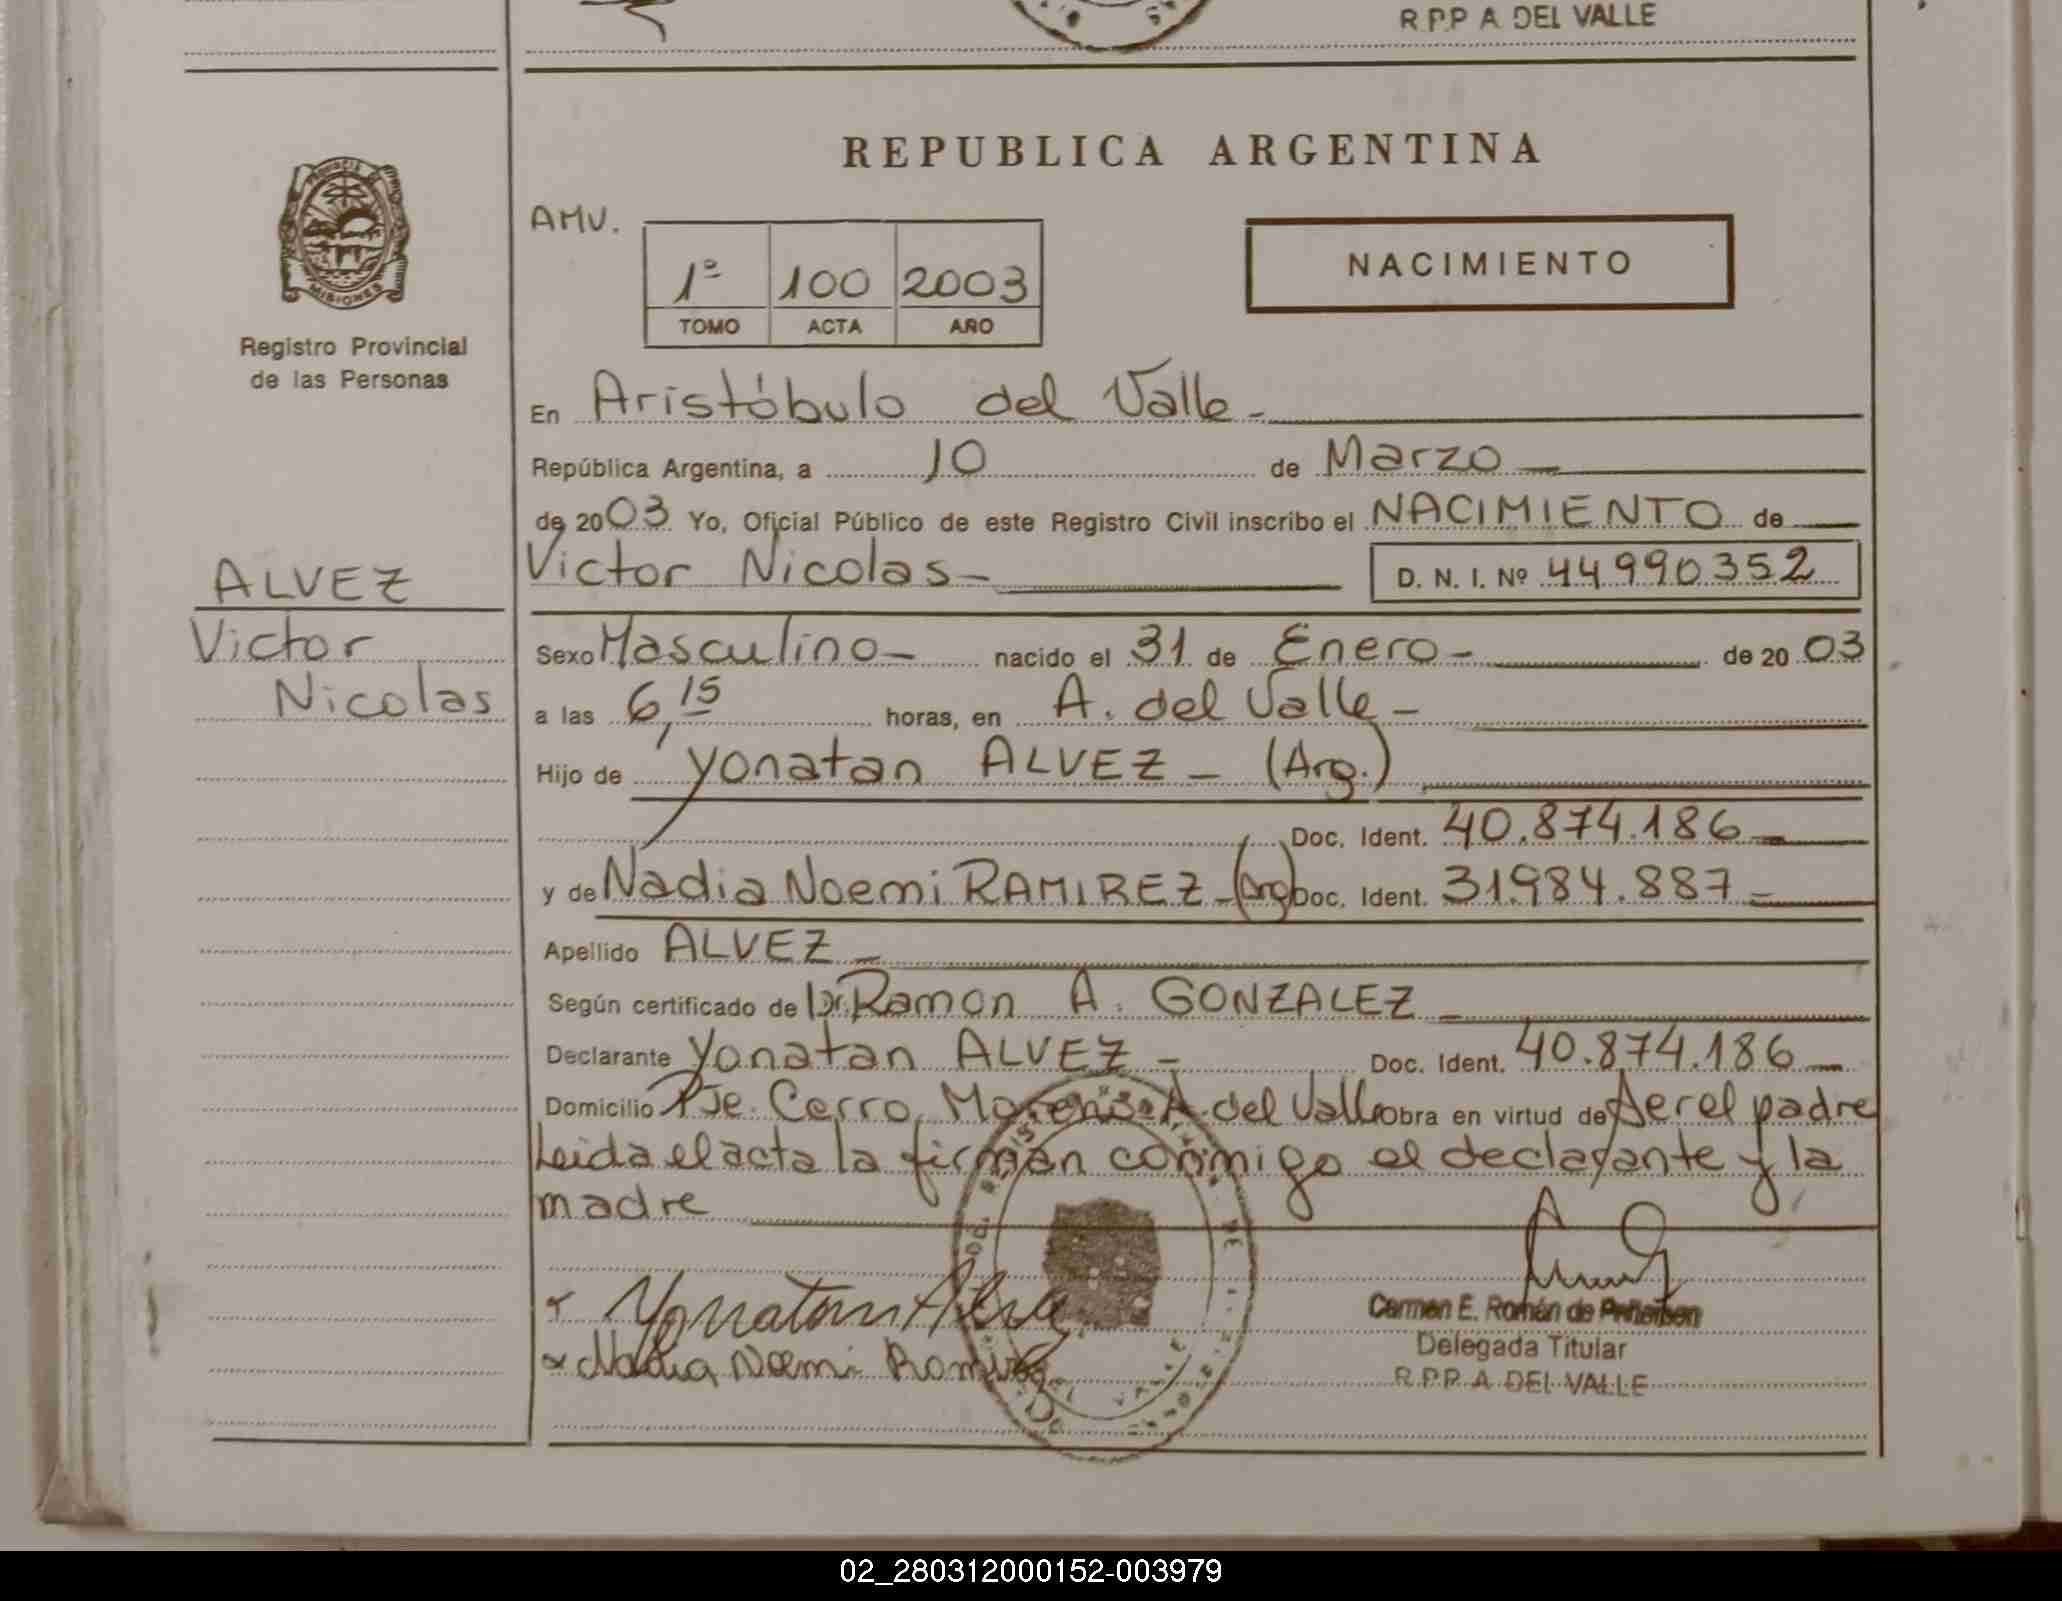 R.P.P A DEL VALLE
REPUBLICA ARGENTINA
PROVINCIA
MISIONES
Registro Provincial
de las Personas
AMV.
1º 100 2003
TOMO ACTA AÑO
NACIMIENTO
En Aristóbulo del Valle -
República Argentina, a 10 de Marzo
de 2003 Yo, Oficial Público de este Registro Civil inscribo el NACIMIENTO de
ALVEZ
Victor
Nicolas
Victor Nicolas - D. N. I. Nº 44990352
Sexo Masculino - nacido el 31 de Enero - de 2003
a las 6,15 horas, en A. del Valle -
Hijo de Yonatan ALVEZ - (Arg.)
Doc. Ident. 40.874.186
y de Nadia Noemi RAMIREZ - (Arg) Doc. Ident. 31.984.887
Apellido ALVEZ
Según certificado de Dr. Ramon A. GONZALEZ
Declarante Yonatan ALVEZ - Doc. Ident. 40.874.186
Domicilio Pje. Cerro Moreno - A. del Valle obra en virtud de ser el padre
Leida el acta la firman conmigo el declarante y la
madre
Yonatan Alvez
Nadia Noemi Ramirez
Carmen E. Román de
Delegada Titular
R.P.P. A DEL VALLE
02_280312000152-003979